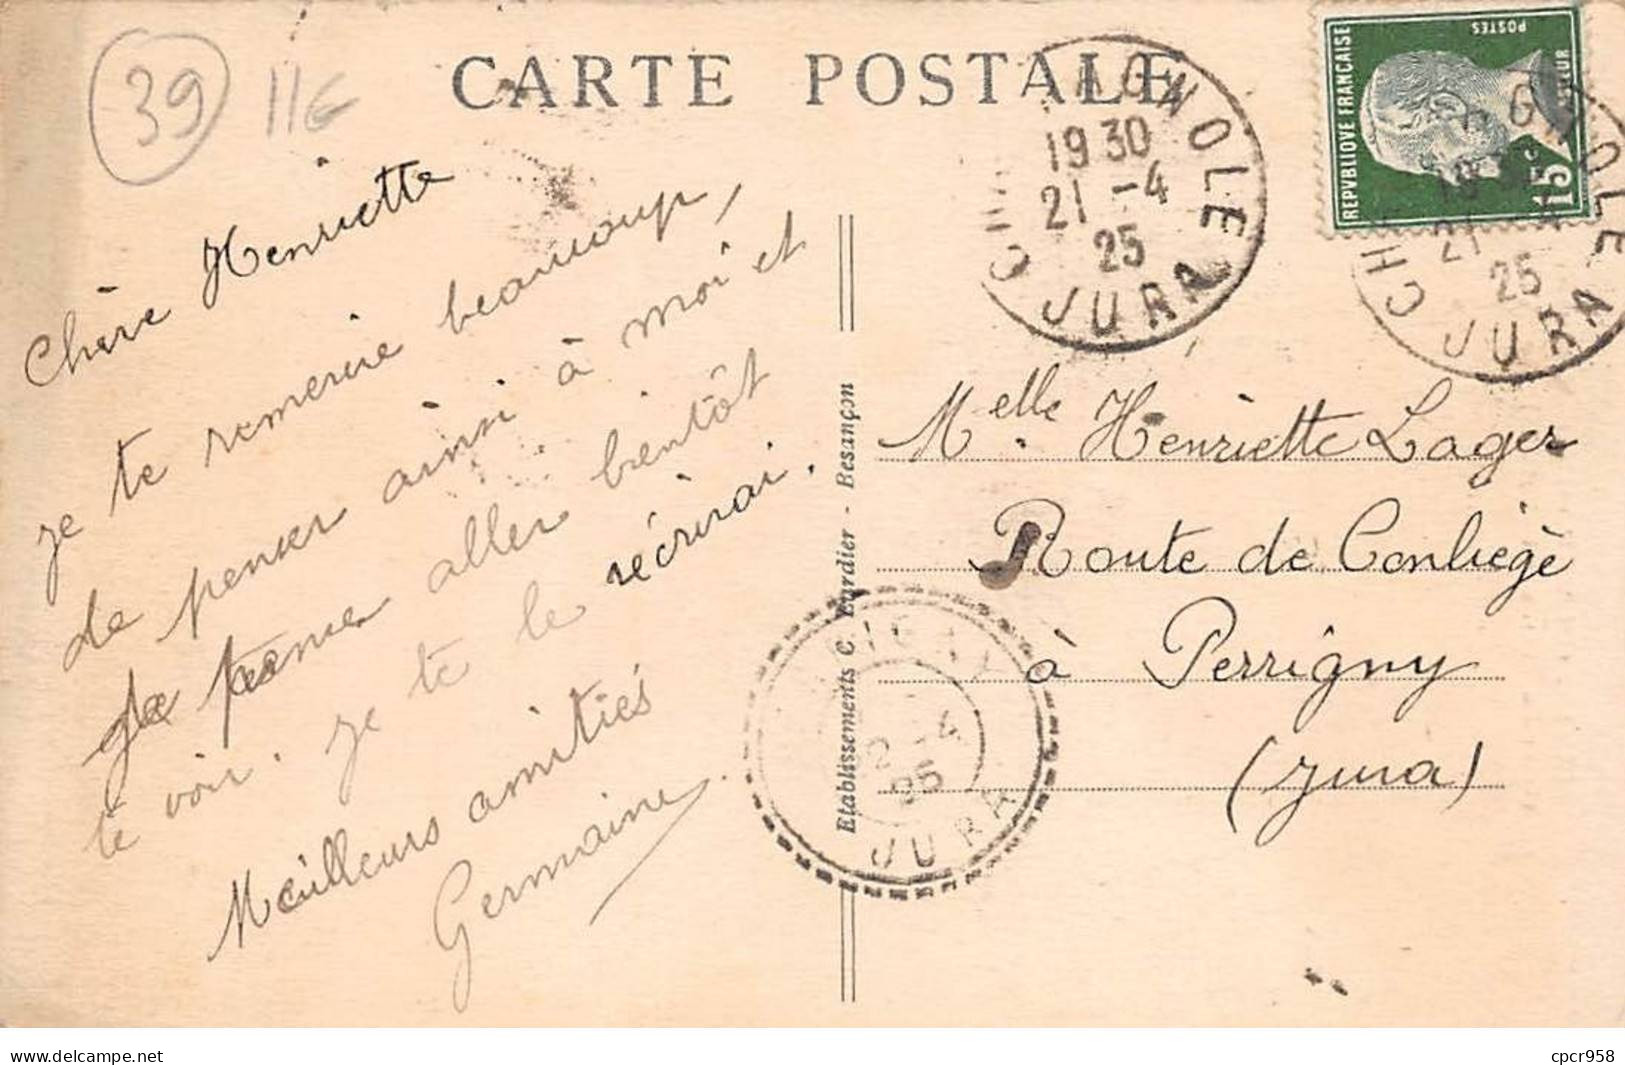 39
11€
CARTE POSTALE
REPVBLIQVE FRANÇAISE
POSTES
15c
19 30
21 -4
25
JURA
21
25
JURA
Chère Henriette
je te remercie beaucoup,
de penser ainsi à moi et
aller bientôt
te voir. Je te le récrirai.
Meilleurs amitiés
Germaine.
Etablissements C. Lardier - Besançon
Melle Henriette Lager
Route de Conliège
à Perrigny
(Jura)
-4
25
JURA
www.delcampe.net
cpcr958